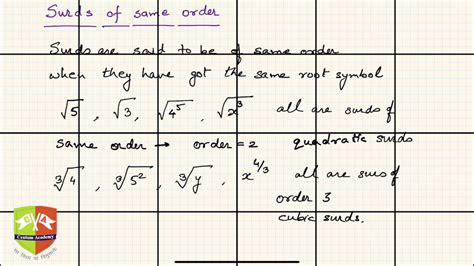 Surds of same order
Surds are said to be of same order
when they have got the same root symbol
√5 , √3 , √4⁵ , √x³ all are surds of
same order → order = 2 quadratic surds
∛4 , ∛5² , ∛y , x^4/3 all are surs of
order 3
cubic surds.
Centum Academy